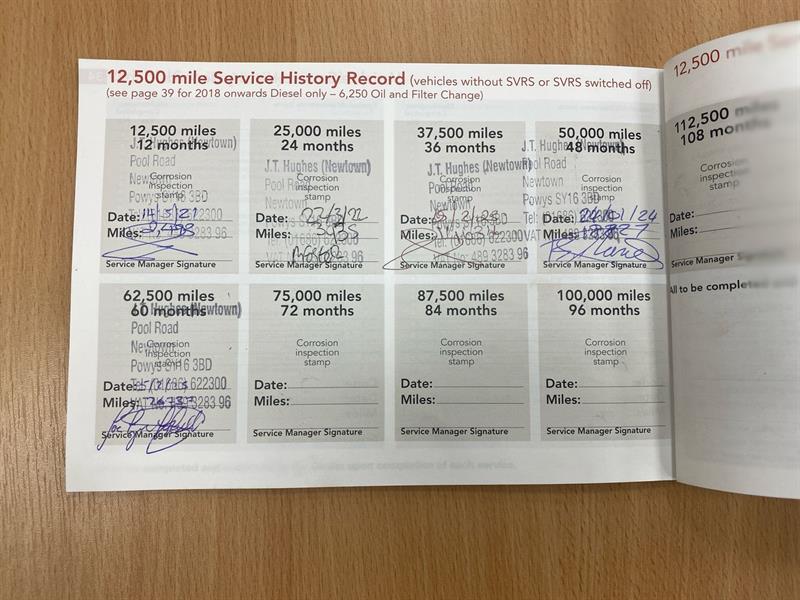 12,500 mile Service History Record (vehicles without SVRS or SVRS switched off)
(see page 39 for 2018 onwards Diesel only – 6,250 Oil and Filter Change)
12,500 miles
12 months
J.T. Hughes (Newtown)
Pool Road
Corrosion
Newtown
inspection
stamp
Powys SY16 3BD
Date: 622300
Miles: 3283 96
Service Manager Signature
25,000 miles
24 months
J.T. Hughes (Newtown)
Pool Road
Corrosion
inspection
stamp
Date: 22/3/22
Tel: (01686) 622300
Miles:
VAT No: 489 3283 96
Service Manager Signature
37,500 miles
36 months
J.T. Hughes (Newtown)
Corrosion
Pool Road
inspection
Newtown
stamp
Powys SY16 3BD
Date:
Tel: (01686) 622300
Miles:
VAT No: 489 3283 96
Service Manager Signature
50,000 miles
48 months
J.T. Hughes (Newtown)
Pool Road
Corrosion
inspection
Newtown
stamp
Powys SY16 3BD
Date: /24
Miles:
Service Manager Signature
62,500 miles
60 months
J.T. Hughes (Newtown)
Pool Road
Corrosion
Newtown
inspection
stamp
Powys SY16 3BD
Date: 622300
Miles: 3283 96
Service Manager Signature
75,000 miles
72 months
Corrosion
inspection
stamp
Date:
Miles:
Service Manager Signature
87,500 miles
84 months
Corrosion
inspection
stamp
Date:
Miles:
Service Manager Signature
100,000 miles
96 months
Corrosion
inspection
stamp
Date:
Miles:
Service Manager Signature
12,500 mile
112,500 miles
108 months
Corrosion
inspection
stamp
Date:
Miles:
Service Manager
All to be completed